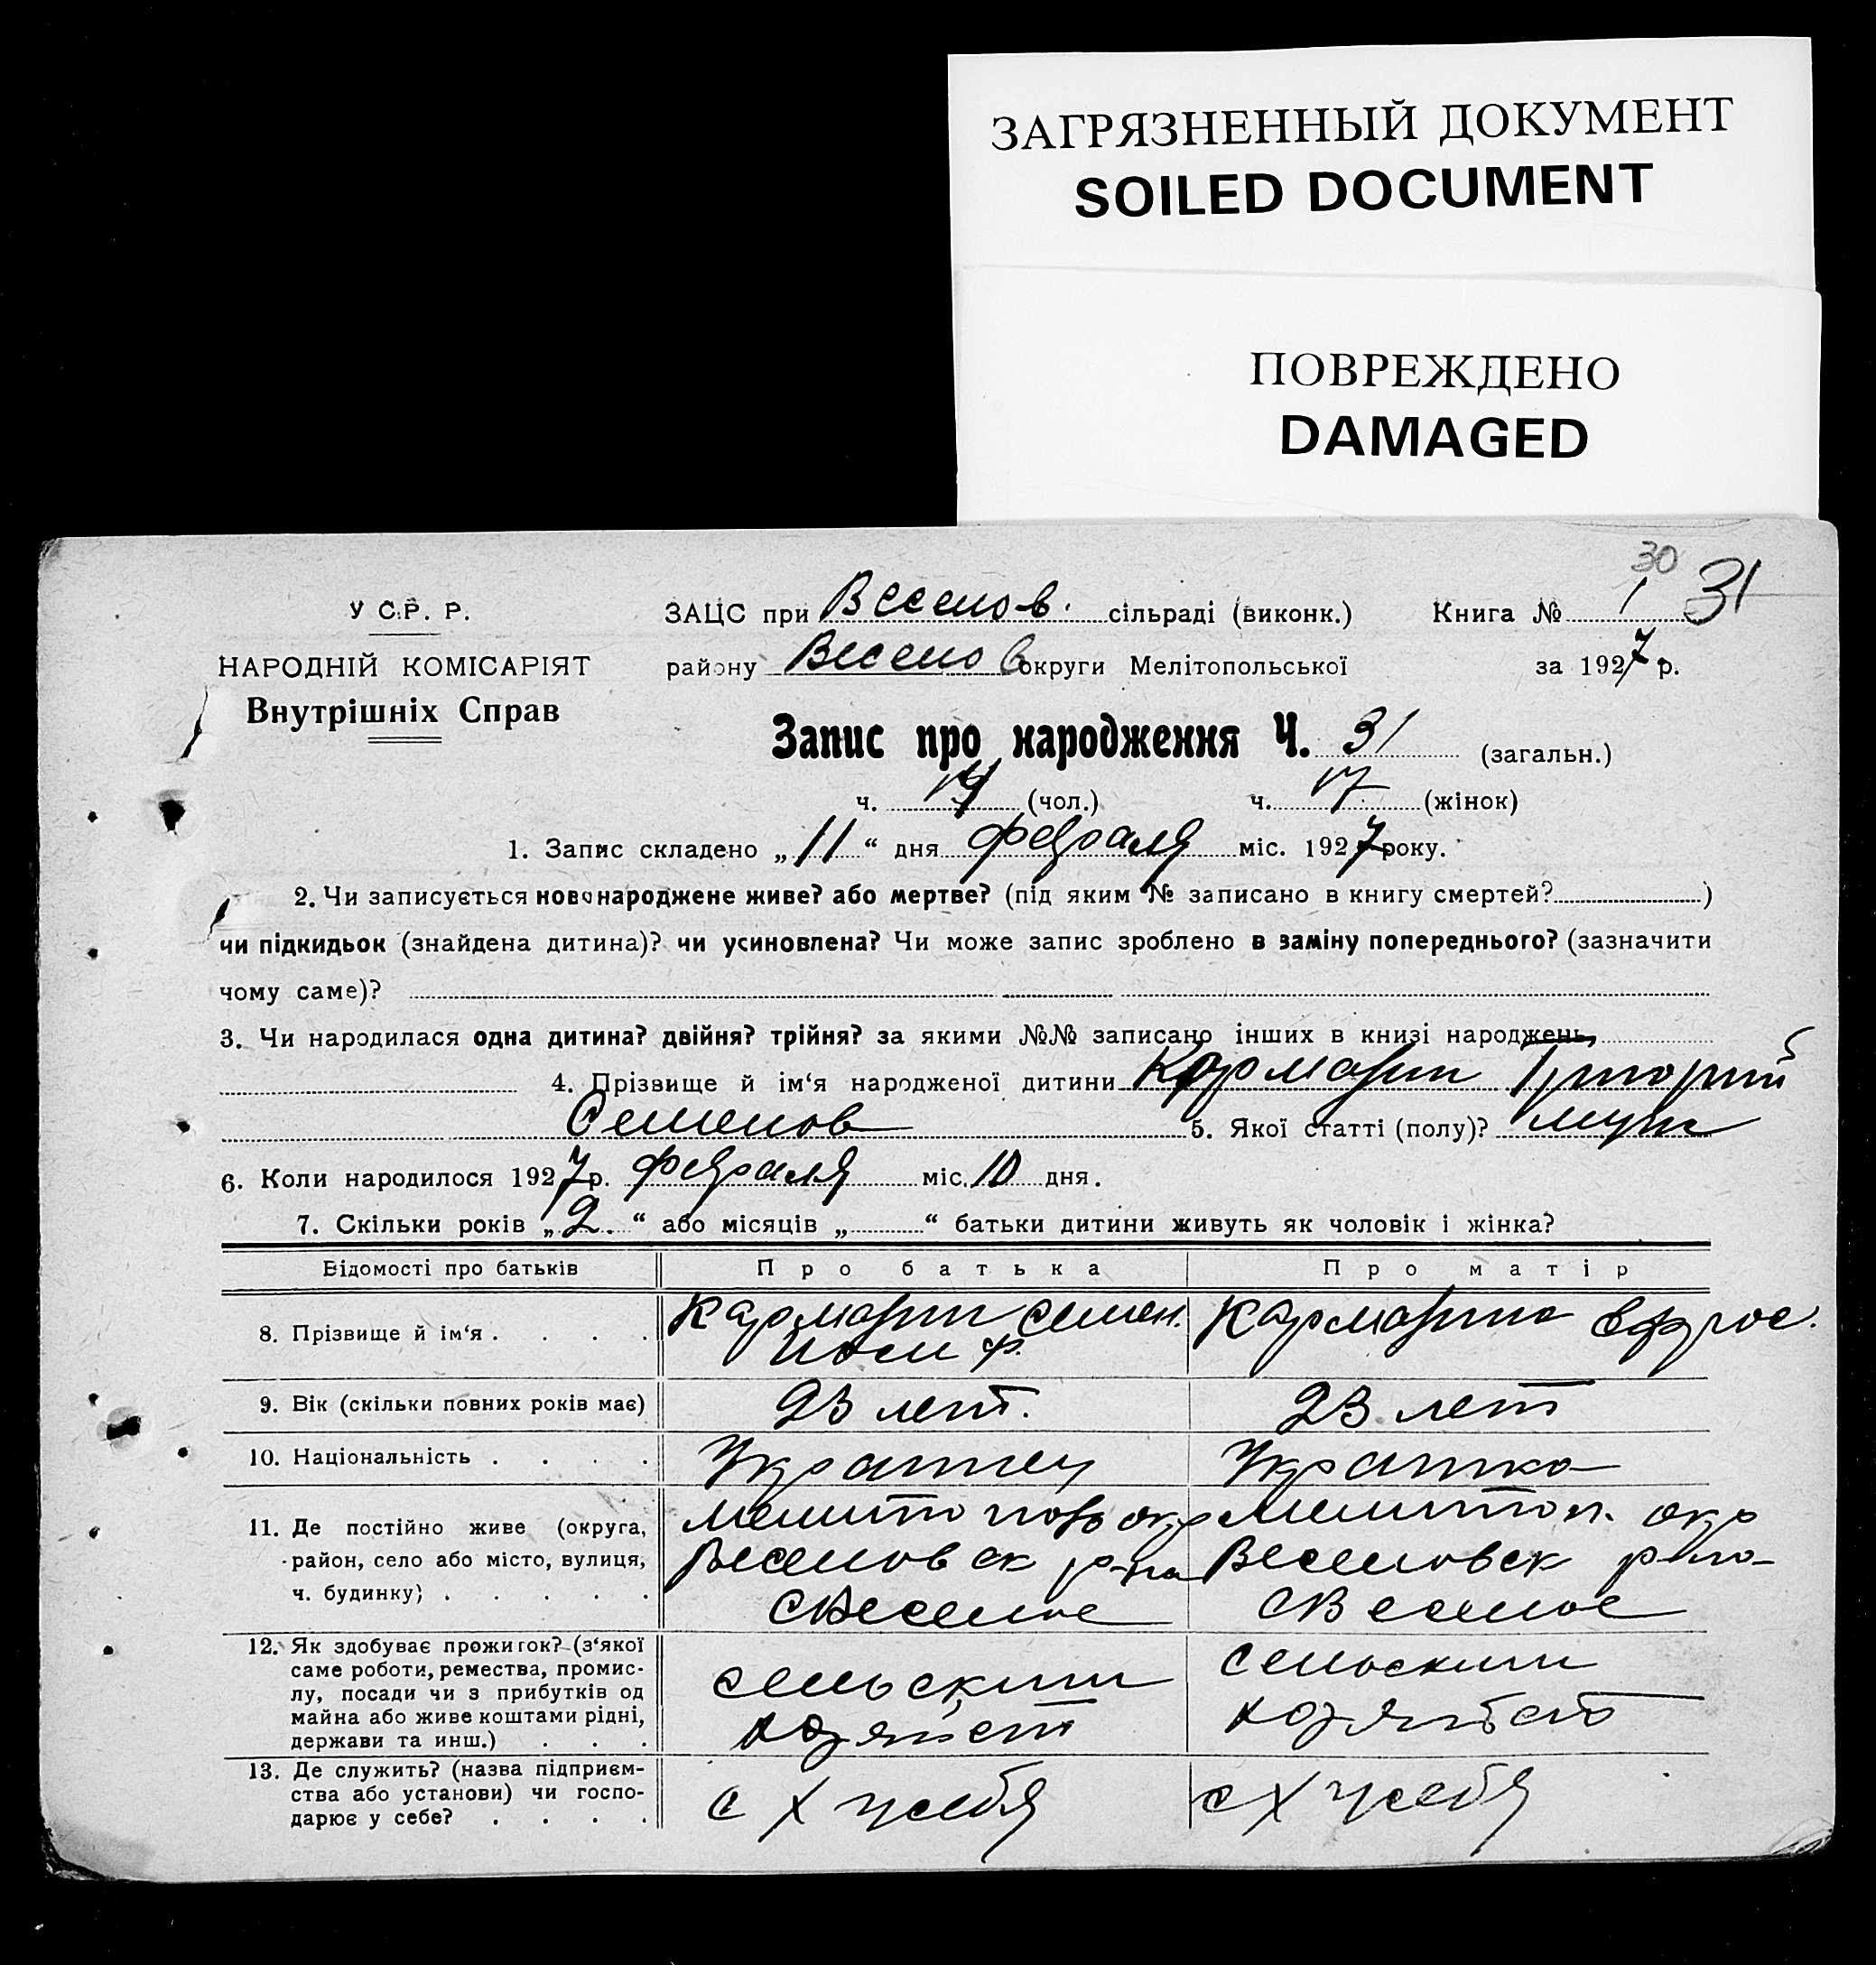 ЗАГРЯЗНЕННЫЙ ДОКУМЕНТ
SOILED DOCUMENT
ПОВРЕЖДЕНО
DAMAGED
30
31
У С.Р. Р.
ЗАЦС при Веселов. сільраді (виконк.) Книга № 1
НАРОДНІЙ КОМІСАРІЯТ
району Веселов округи Мелітопольської за 1927 р.
Внутрішніх Справ
Запис про народження Ч. 31 (загальн.)
ч. 14 (чол.) ч. 17 (жінок)
1. Запис складено „11“ дня февраля міс. 1927 року.
2. Чи записується новонароджене живе? або мертве? (під яким № записано в книгу смертей? )
чи підкидьок (знайдена дитина)? чи усиновлена? Чи може запис зроблено в заміну попереднього? (зазначити
чому саме)?
3. Чи народилася одна дитина? двійня? трійня? за якими №№ записано інших в книзі народжень
4. Прізвище й ім‘я народженої дитини Кармазин Григорий
Семенов 5. Якої статті (полу)? муж
6. Коли народилося 1927 р. февраля міс. 10 дня.
7. Скільки років „2.“ або місяців „ “ батьки дитини живуть як чоловік і жінка?
Відомості про батьків Про батька Про матір
8. Прізвище й ім‘я . . . . Кармазин Семен. Кармазина Ефрос.
Иосиф.
9. Вік (скільки повних років має) 23 лет. 23 лет
10. Національність . . . . Украинец Украинка
11. Де постійно живе (округа, Мелитопол окр Мелитоп. окр
район, село або місто, вулиця, Веселовск р-на Веселовск р-на
ч. будинку) . . . . . с Веселое с Веселое
12. Як здобуває прожиток? (з‘якої
саме роботи, ремества, промис- сельским сельским
лу, посади чи з прибутків од
майна або живе коштами рідні, хозяйст хозяйство
держави та инш.) . . .
13. Де служить? (назва підприєм-
ства або установи) чи госпо- с х у себя с х у себя
дарює у себе? . . . .